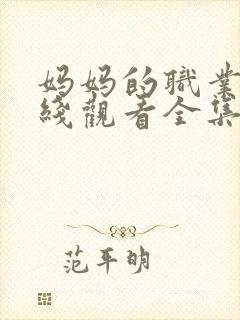 妈妈的職業
綫觀看全集
范平明